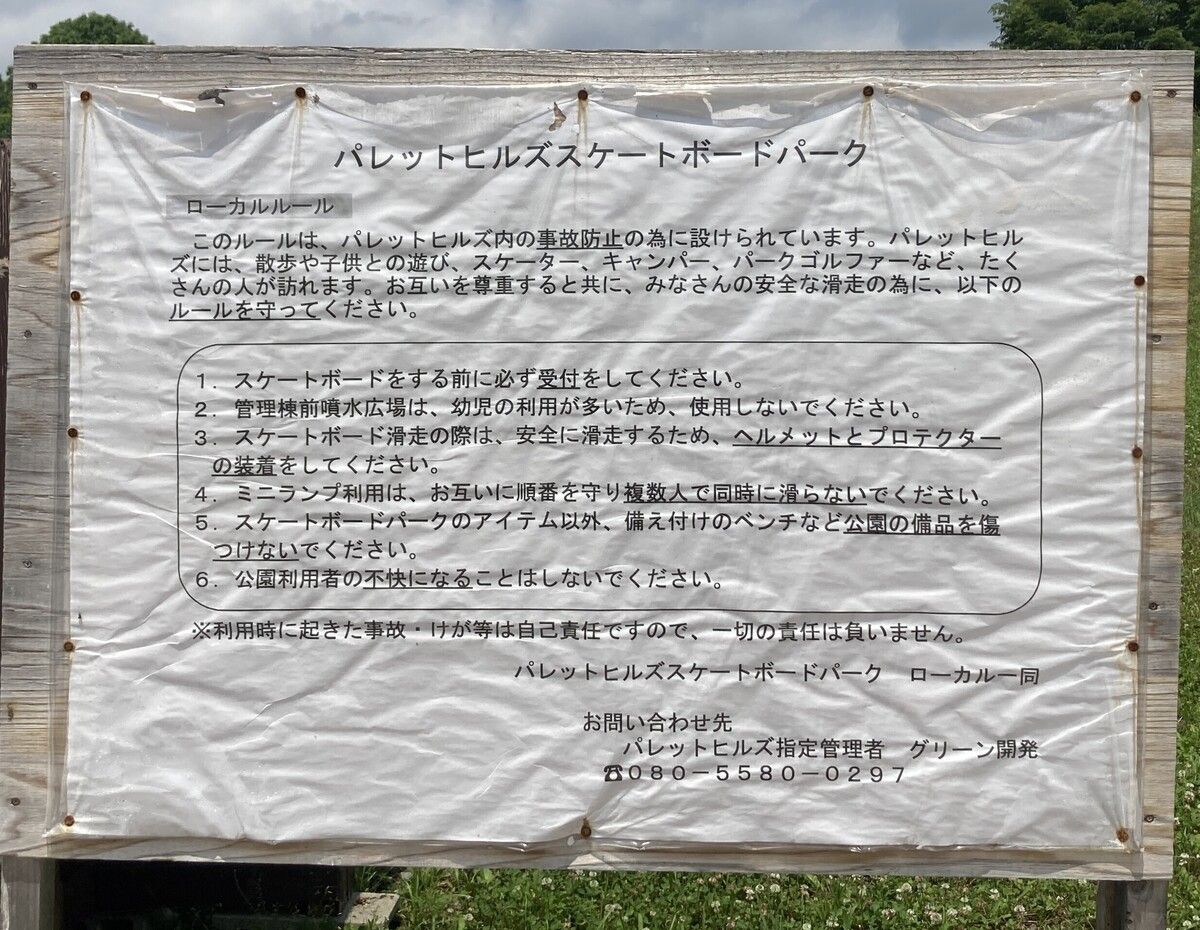 パレットヒルズスケートボードパーク
ローカルルール
このルールは、パレットヒルズ内の事故防止の為に設けられています。パレットヒル
ズには、散歩や子供との遊び、スケーター、キャンパー、パークゴルファーなど、たく
さんの人が訪れます。お互いを尊重すると共に、みなさんの安全な滑走の為に、以下の
ルールを守ってください。
1．スケートボードをする前に必ず受付をしてください。
2．管理棟前噴水広場は、幼児の利用が多いため、使用しないでください。
3．スケートボード滑走の際は、安全に滑走するため、ヘルメットとプロテクター
の装着をしてください。
4．ミニランプ利用は、お互いに順番を守り複数人で同時に滑らないでください。
5．スケートボードパークのアイテム以外、備え付けのベンチなど公園の備品を傷
つけないでください。
6．公園利用者の不快になることはしないでください。
※利用時に起きた事故・けが等は自己責任ですので、一切の責任は負いません。
パレットヒルズスケートボードパーク　ローカル一同
お問い合わせ先
パレットヒルズ指定管理者　グリーン開発
☎080－5580－0297